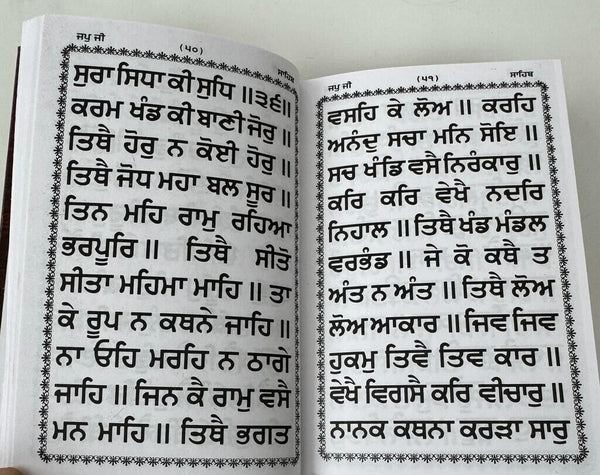 ਜਪੁ ਜੀ (੫੦) ਸਾਹਿਬ
ਸੁਰਾ ਸਿਧਾ ਕੀ ਸੁਧਿ ॥੩੬॥
ਕਰਮ ਖੰਡ ਕੀ ਬਾਣੀ ਜੋਰੁ ॥
ਤਿਥੈ ਹੋਰੁ ਨ ਕੋਈ ਹੋਰੁ ॥
ਤਿਥੈ ਜੋਧ ਮਹਾ ਬਲ ਸੂਰ ॥
ਤਿਨ ਮਹਿ ਰਾਮੁ ਰਹਿਆ
ਭਰਪੂਰਿ ॥ ਤਿਥੈ ਸੀਤੋ
ਸੀਤਾ ਮਹਿਮਾ ਮਾਹਿ ॥ ਤਾ
ਕੇ ਰੂਪ ਨ ਕਥਨੇ ਜਾਹਿ ॥
ਨਾ ਓਹਿ ਮਰਹਿ ਨ ਠਾਗੇ
ਜਾਹਿ ॥ ਜਿਨ ਕੈ ਰਾਮੁ ਵਸੈ
ਮਨ ਮਾਹਿ ॥ ਤਿਥੈ ਭਗਤ
ਜਪੁ ਜੀ (੫੧) ਸਾਹਿਬ
ਵਸਹਿ ਕੇ ਲੋਅ ॥ ਕਰਹਿ
ਅਨੰਦੁ ਸਚਾ ਮਨਿ ਸੋਇ ॥
ਸਚ ਖੰਡਿ ਵਸੈ ਨਿਰੰਕਾਰੁ ॥
ਕਰਿ ਕਰਿ ਵੇਖੈ ਨਦਰਿ
ਨਿਹਾਲ ॥ ਤਿਥੈ ਖੰਡ ਮੰਡਲ
ਵਰਭੰਡ ॥ ਜੇ ਕੋ ਕਥੈ ਤ
ਅੰਤ ਨ ਅੰਤ ॥ ਤਿਥੈ ਲੋਅ
ਲੋਅ ਆਕਾਰ ॥ ਜਿਵ ਜਿਵ
ਹੁਕਮੁ ਤਿਵੈ ਤਿਵ ਕਾਰ ॥
ਵੇਖੈ ਵਿਗਸੈ ਕਰਿ ਵੀਚਾਰੁ ॥
ਨਾਨਕ ਕਥਨਾ ਕਰੜਾ ਸਾਰੁ